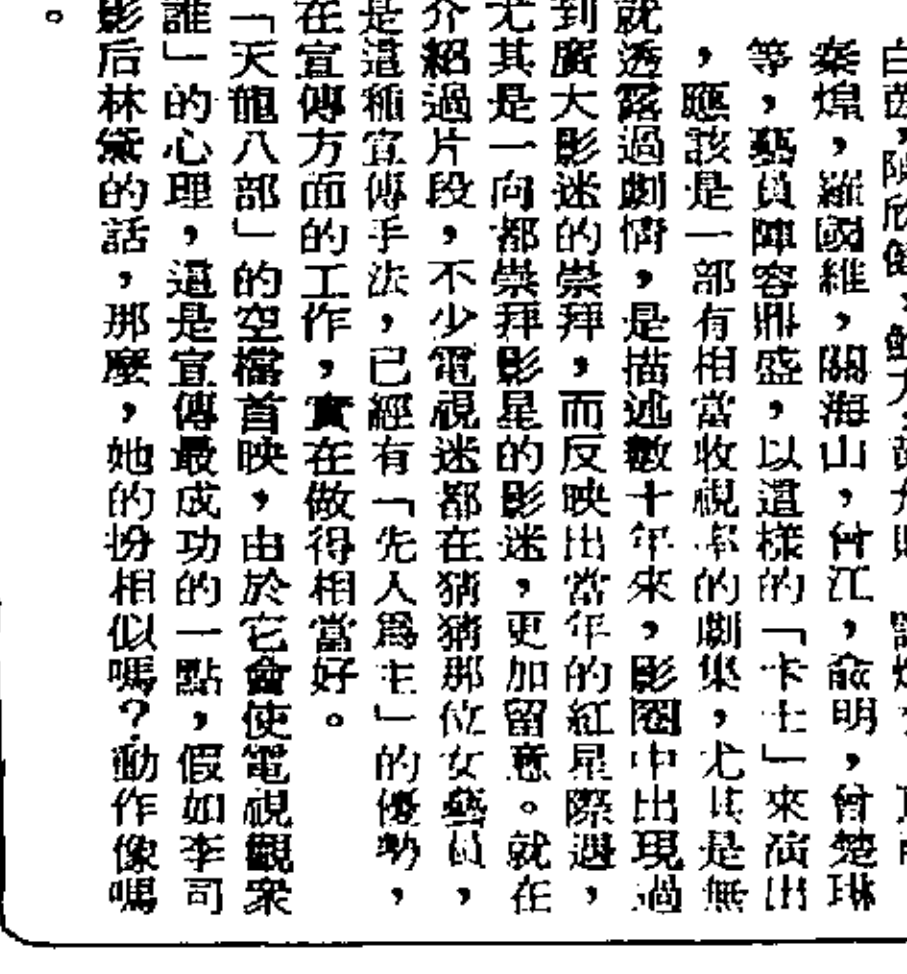 白茵，陳欣健，
秦煌，羅國維，關海山，曾江，兪明，曾楚琳
等，藝員陣容鼎盛，以這樣的「卡士」來演出
，應該是一部有相當收視率的劇集，尤其是無
就透露過劇情，是描述數十年來，影圈中出現過
到廣大影迷的崇拜，而反映出當年的紅星際遇，
尤其是一向都崇拜影星的影迷，更加留意。就在
介紹過片段，不少電視迷都在猜猜那位女藝員，
是這種宣傳手法，已經有「先人爲主」的優勢，
在宣傳方面的工作，實在做得相當好。
「天龍八部」的空檔首映，由於它會使電視觀衆
誰」的心理，這是宣傳最成功的一點，假如李司
影后林黛的話，那麼，她的扮相似嗎？動作像嗎
。